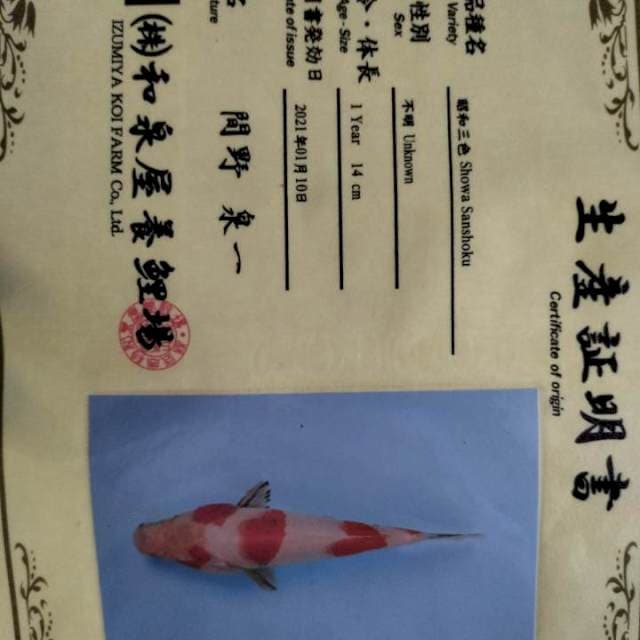 生産証明書
Certificate of origin
品種名 昭和三色 Showa Sanshoku
Variety
性別 不明 Unknown
Sex
・体長 1 Year 14 cm
Age・Size
書発効日 2021年01月10日
of issue
名 間野 泉一
(株)和泉屋養鯉場
IZUMIYA KOI FARM Co., Ltd.